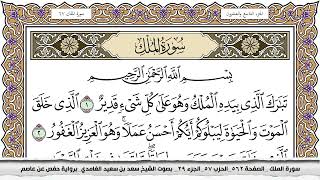 الجزء التاسع والعشرون
سورة الملك ٦٧
سُورَةُ المُلْكِ
بِسْمِ اللَّهِ الرَّحْمَٰنِ الرَّحِيمِ
تَبَارَكَ الَّذِي بِيَدِهِ الْمُلْكُ وَهُوَ عَلَىٰ كُلِّ شَيْءٍ قَدِيرٌ ١ الَّذِي خَلَقَ
الْمَوْتَ وَالْحَيَاةَ لِيَبْلُوَكُمْ أَيُّكُمْ أَحْسَنُ عَمَلًا وَهُوَ الْعَزِيزُ الْغَفُورُ ٢
سورة الملك . الصفحة ٥٦٢ الحزب ٥٧ الجزء ٢٩ . بصوت الشيخ سعد بن سعيد الغامدي . برواية حفص عن عاصم